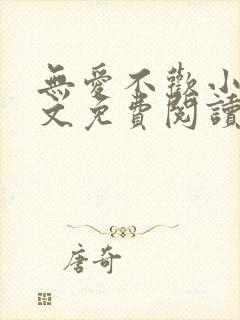 無愛不歡小
文免費閱讀
唐奇